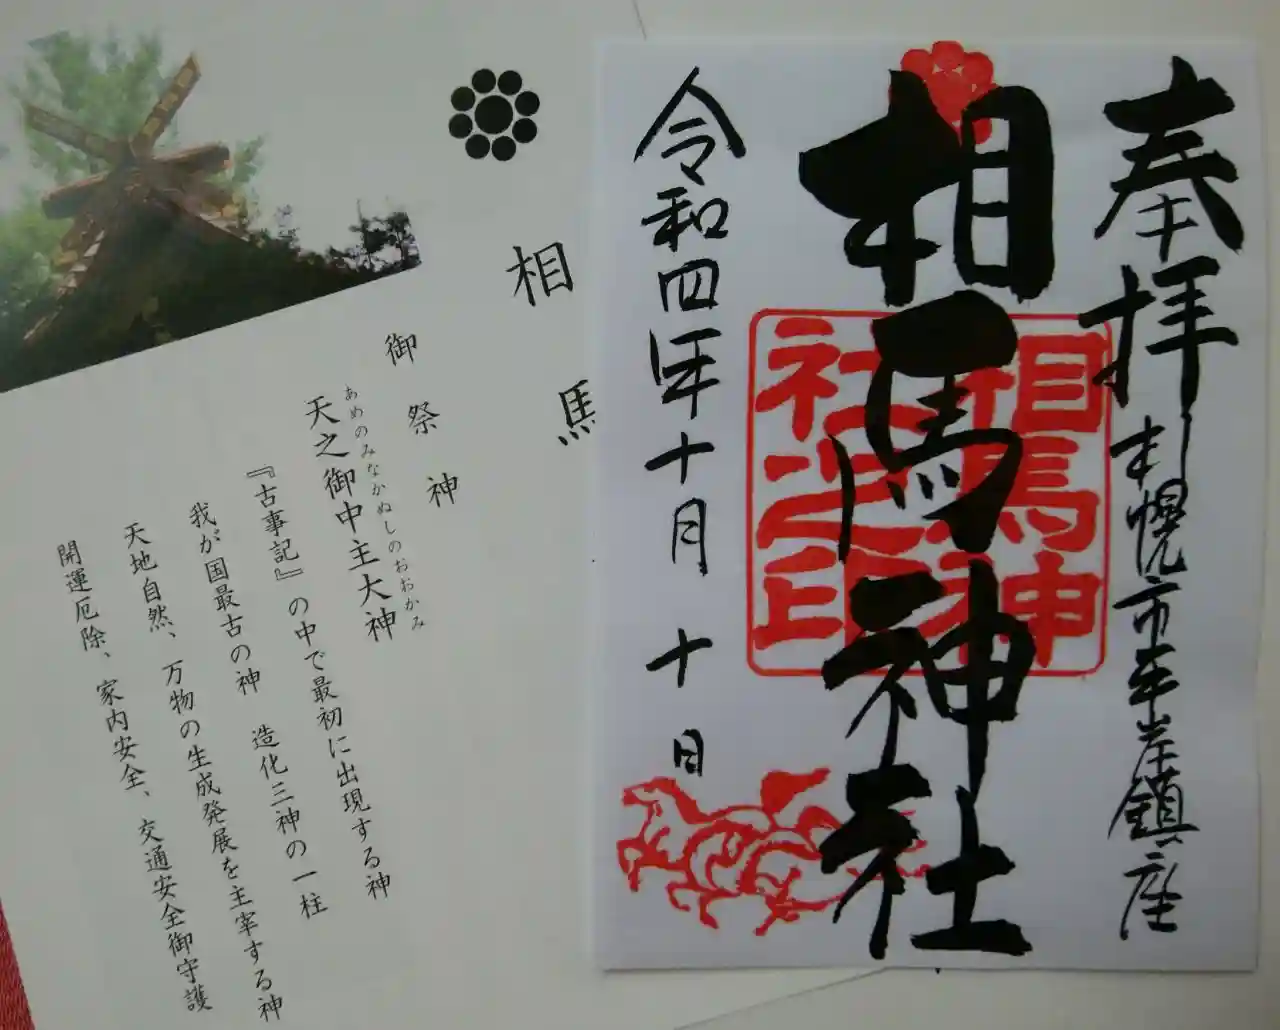 奉拝
札幌市平岸鎮座
相馬神社
相馬神
社之印
令和四年十月十日
相馬
御祭神
あめのみなかぬしのおおかみ
天之御中主大神
『古事記』の中で最初に出現する神
我が国最古の神　造化三神の一柱
天地自然、万物の生成発展を主宰する神
開運厄除、家内安全、交通安全御守護